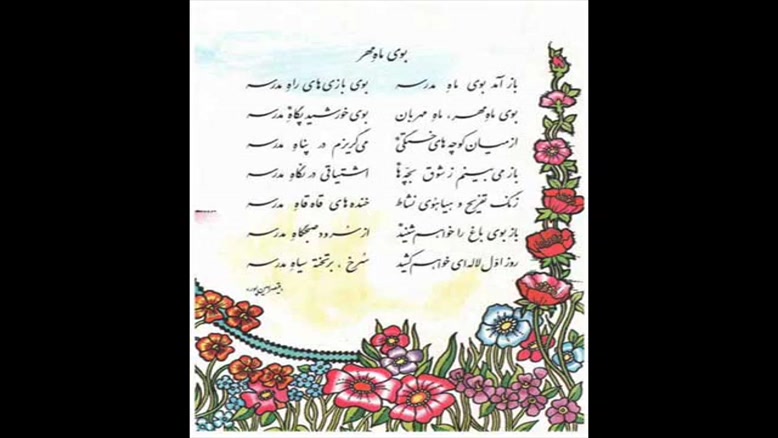 بوی ماه مهر
باز آمد بوی ماه مدرسه بوی بازی های راه مدرسه
بوی ماه مهر، ماه مهربان بوی خورشید پگاه مدرسه
از میان کوچه های خستگی می گریزم در پناه مدرسه
باز می بینم ز شوق بچّه ها اشتیاقی در نگاه مدرسه
زنگ تفریح و هیاهوی نشاط خنده های قاه قاه مدرسه
باز بوی باغ را خواهم شنید از سرود صبحگاه مدرسه
روز اوّل لاله ای خواهم کشید سُرخ ، بر تخته سیاه مدرسه
«قیصر امین پور»